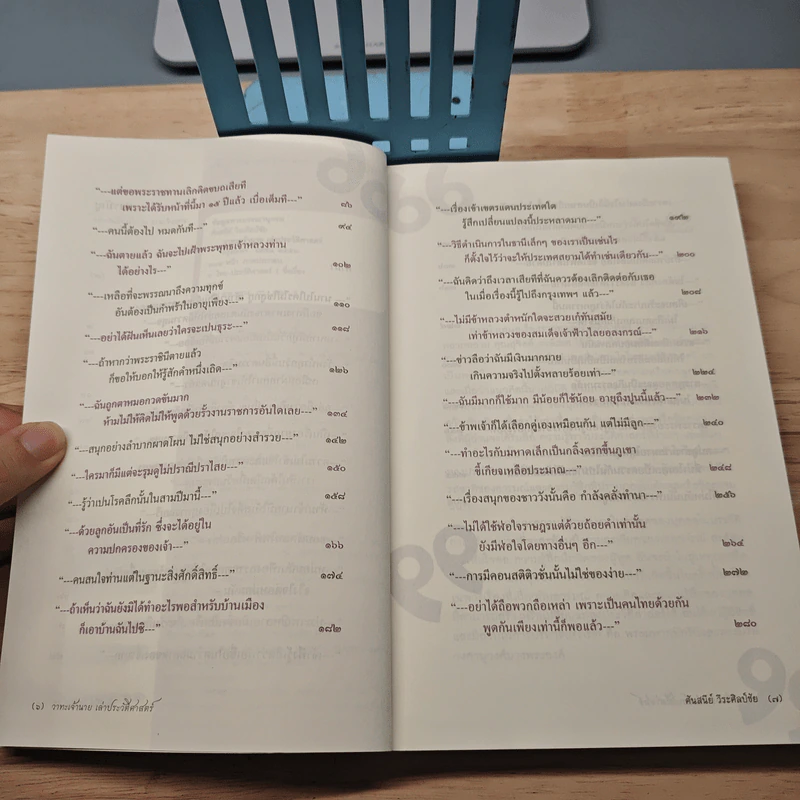 “---แต่ขอพระราชทานเลิกคิดขบถเสียที
เพราะได้รับหน้าที่นี้มา ๑๕ ปีแล้ว เบื่อเต็มที---” ๘๖
“---คนนี้ต้องไป หมดกันที---” ๙๔
“---ฉันตายแล้ว ฉันจะไปเฝ้าพระพุทธเจ้าหลวงท่าน
ได้อย่างไร---” ๑๐๒
“---เหลือที่จะพรรณนาถึงความทุกข์
อันต้องเป็นกำพร้าในอายุเพียง---” ๑๑๐
“---อย่าได้ฝันเห็นเลยว่าใครจะเปนธุระ---” ๑๑๘
“---ถ้าหากว่าพระราชินีตายแล้ว
ก็ขอให้บอกให้รู้สักคำหนึ่งเถิด---” ๑๒๖
“---ฉันถูกตาหมอกวดขันมาก
ห้ามไม่ให้คิดไม่ให้พูดด้วยรั้วงานราชการอันใดเลย---” ๑๓๔
“---สนุกอย่างลำบากผาดโผน ไม่ใช่สนุกอย่างสำรวย---” ๑๔๒
“---ใครมาก็มีแต่จะรุมดูไม่ปราณีปราไสย---” ๑๕๐
“---รู้ว่าเปนโรคลึกนั้นในสามปีมานี้---” ๑๕๘
“---ด้วยลูกอันเป็นที่รัก ซึ่งจะได้อยู่ใน
ความปกครองของเจ้า---” ๑๖๖
“---คนสนใจท่านแต่ในฐานะสิ่งศักดิ์สิทธิ์---” ๑๗๔
“---ถ้าเห็นว่าฉันยังมิได้ทำอะไรพอสำหรับบ้านเมือง
ก็เอาบ้านฉันไปซิ---” ๑๘๒
(๖) วาทะเจ้านาย เล่าประวัติศาสตร์
“---เรื่องเข้าเขตรแดนประเทศใด
รู้สึกเปลี่ยนแปลงนี้ประหลาดมาก---” ๑๙๒
“---วิธีดำเนินการในธานีเล็กๆ ของเราเป็นเช่นไร
ก็ตั้งใจไว้ว่าจะให้ประเทศสยามได้ทำเช่นเดียวกัน---” ๒๐๐
“---ฉันคิดว่าถึงเวลาเสียทีที่ฉันควรต้องเลิกติดต่อกับเธอ
ในเมื่อเรื่องนี้รู้ไปถึงกรุงเทพฯ แล้ว---” ๒๐๘
“---ไม่มีข้าหลวงตำหนักใดจะสวยเก๋ทันสมัย
เท่าข้าหลวงของสมเด็จเจ้าฟ้าวไลยอลงกรณ์---” ๒๑๖
“---ข่าวลือว่าฉันมีเงินมากมาย
เกินความจริงไปตั้งหลายร้อยเท่า---” ๒๒๔
“---ฉันมีมากก็ใช้มาก มีน้อยก็ใช้น้อย อายุถึงปูนนี้แล้ว---” ๒๓๒
“---ข้าพเจ้าก็ได้เลือกคู่เองเหมือนกัน แต่ไม่มีลูก---” ๒๔๐
“---ทำอะไรกับมหาดเล็กเป็นกลิ้งครกขึ้นภูเขา
ขี้เกียจเหลือประมาณ---” ๒๔๘
“---เรื่องสนุกของชาววังนั้นคือ กำลังคลั่งทำนา---” ๒๕๖
“---ไม่ได้ใช้ฬ่อใจราษฎรแต่ด้วยถ้อยคำเท่านั้น
ยังมีฬ่อใจโดยทางอื่นๆ อีก---” ๒๖๔
“---การมีคอนสติติวชั่นนั้นไม่ใช่ของง่าย---” ๒๗๒
“---อย่าได้ถือพวกถือเหล่า เพราะเป็นคนไทยด้วยกัน
พูดกันเพียงเท่านี้ก็พอแล้ว---” ๒๘๐
ศันสนีย์ วีระศิลป์ชัย (๗)